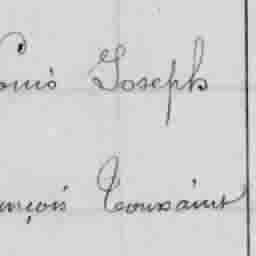 Louis Joseph
ançois Toussaint